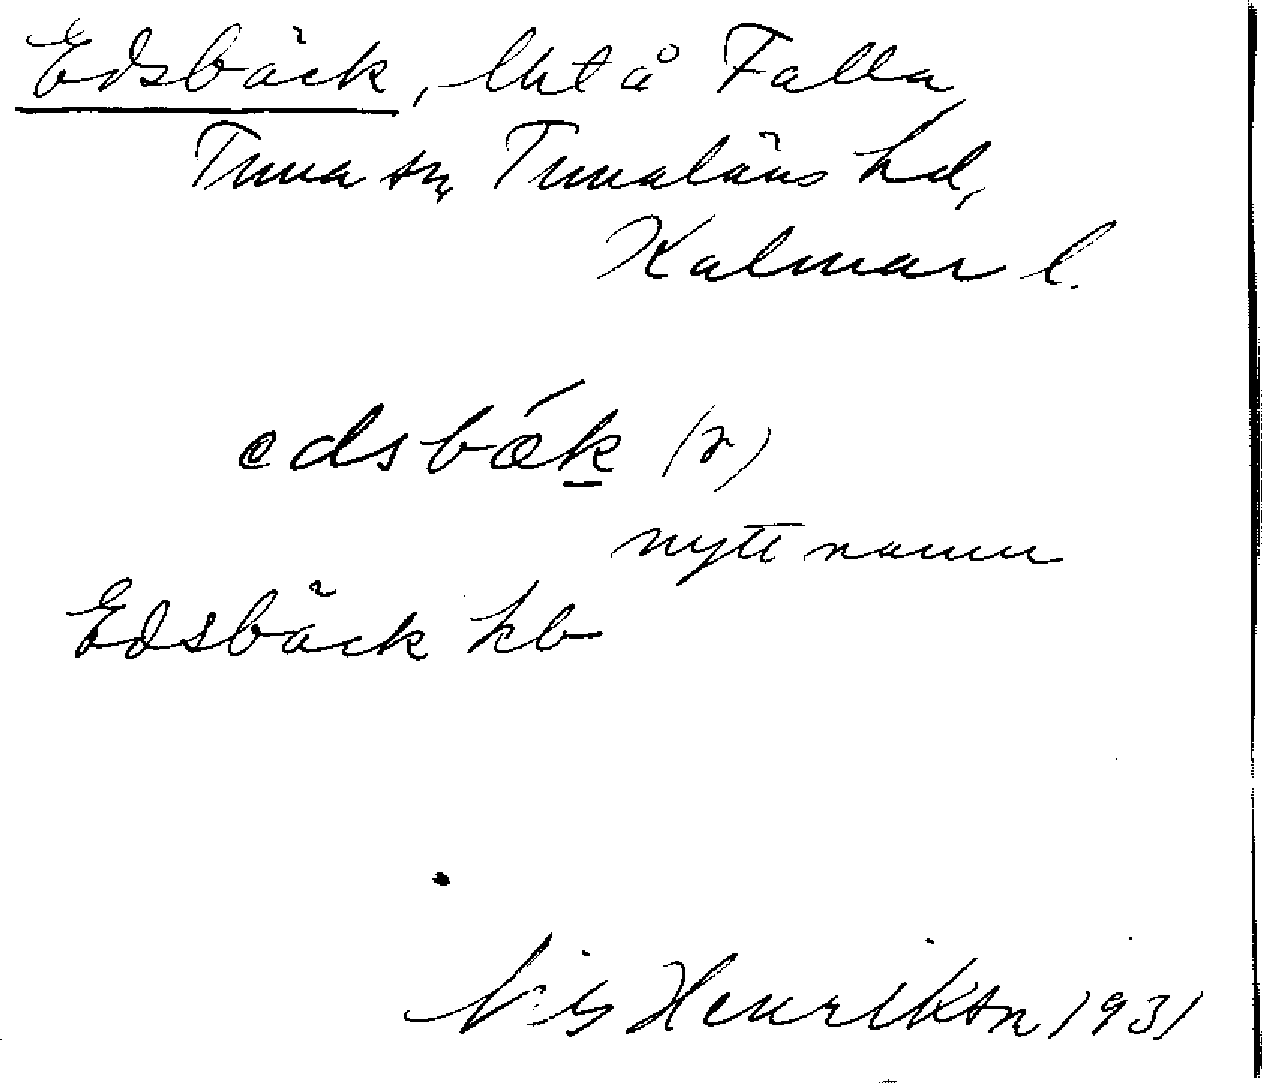 Edsbäck, lht å Falla
Tuna sn, Tunaläns hd,
Kalmar l.
edsbǽk (r)
nytt namn
Edsbäck kb
Nils Henrikson 1931